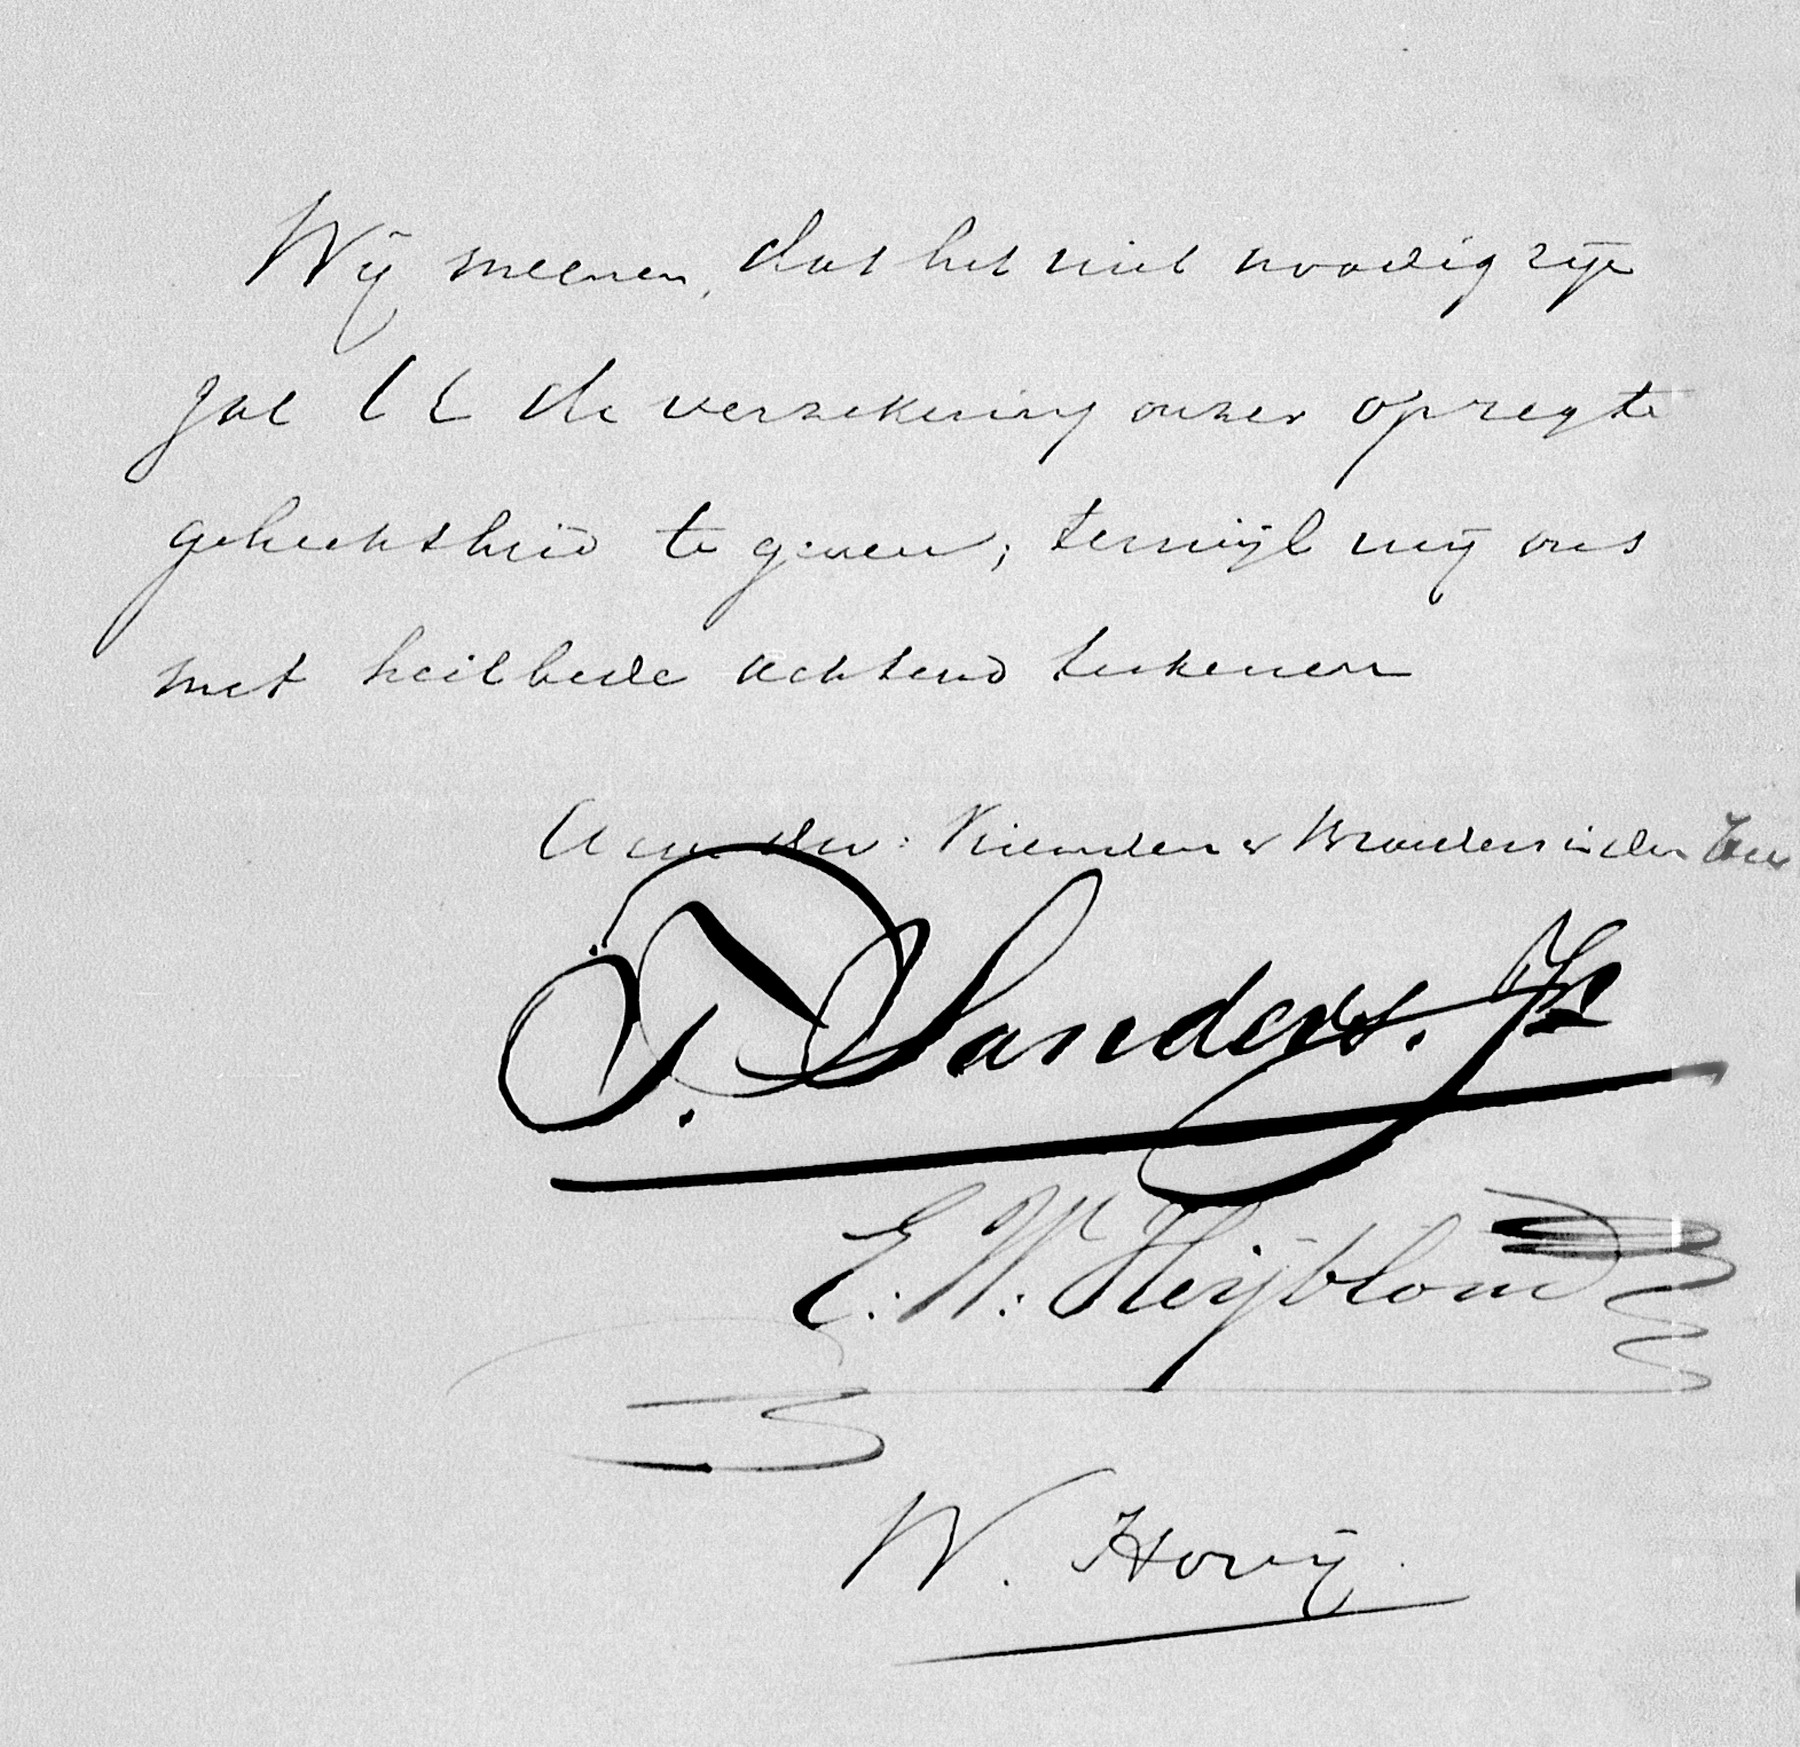 Wij meenen, dat het niet noodig zijn
zal U de verzekering onzer opregte
gehechtheid te geven; terwijl wij ons
met heilbede achtend teekenen
Uw dw: Vrienden & Broeders in den Heer
T. Sanders. Jr
E. W. Heijblom
W. Hovij.